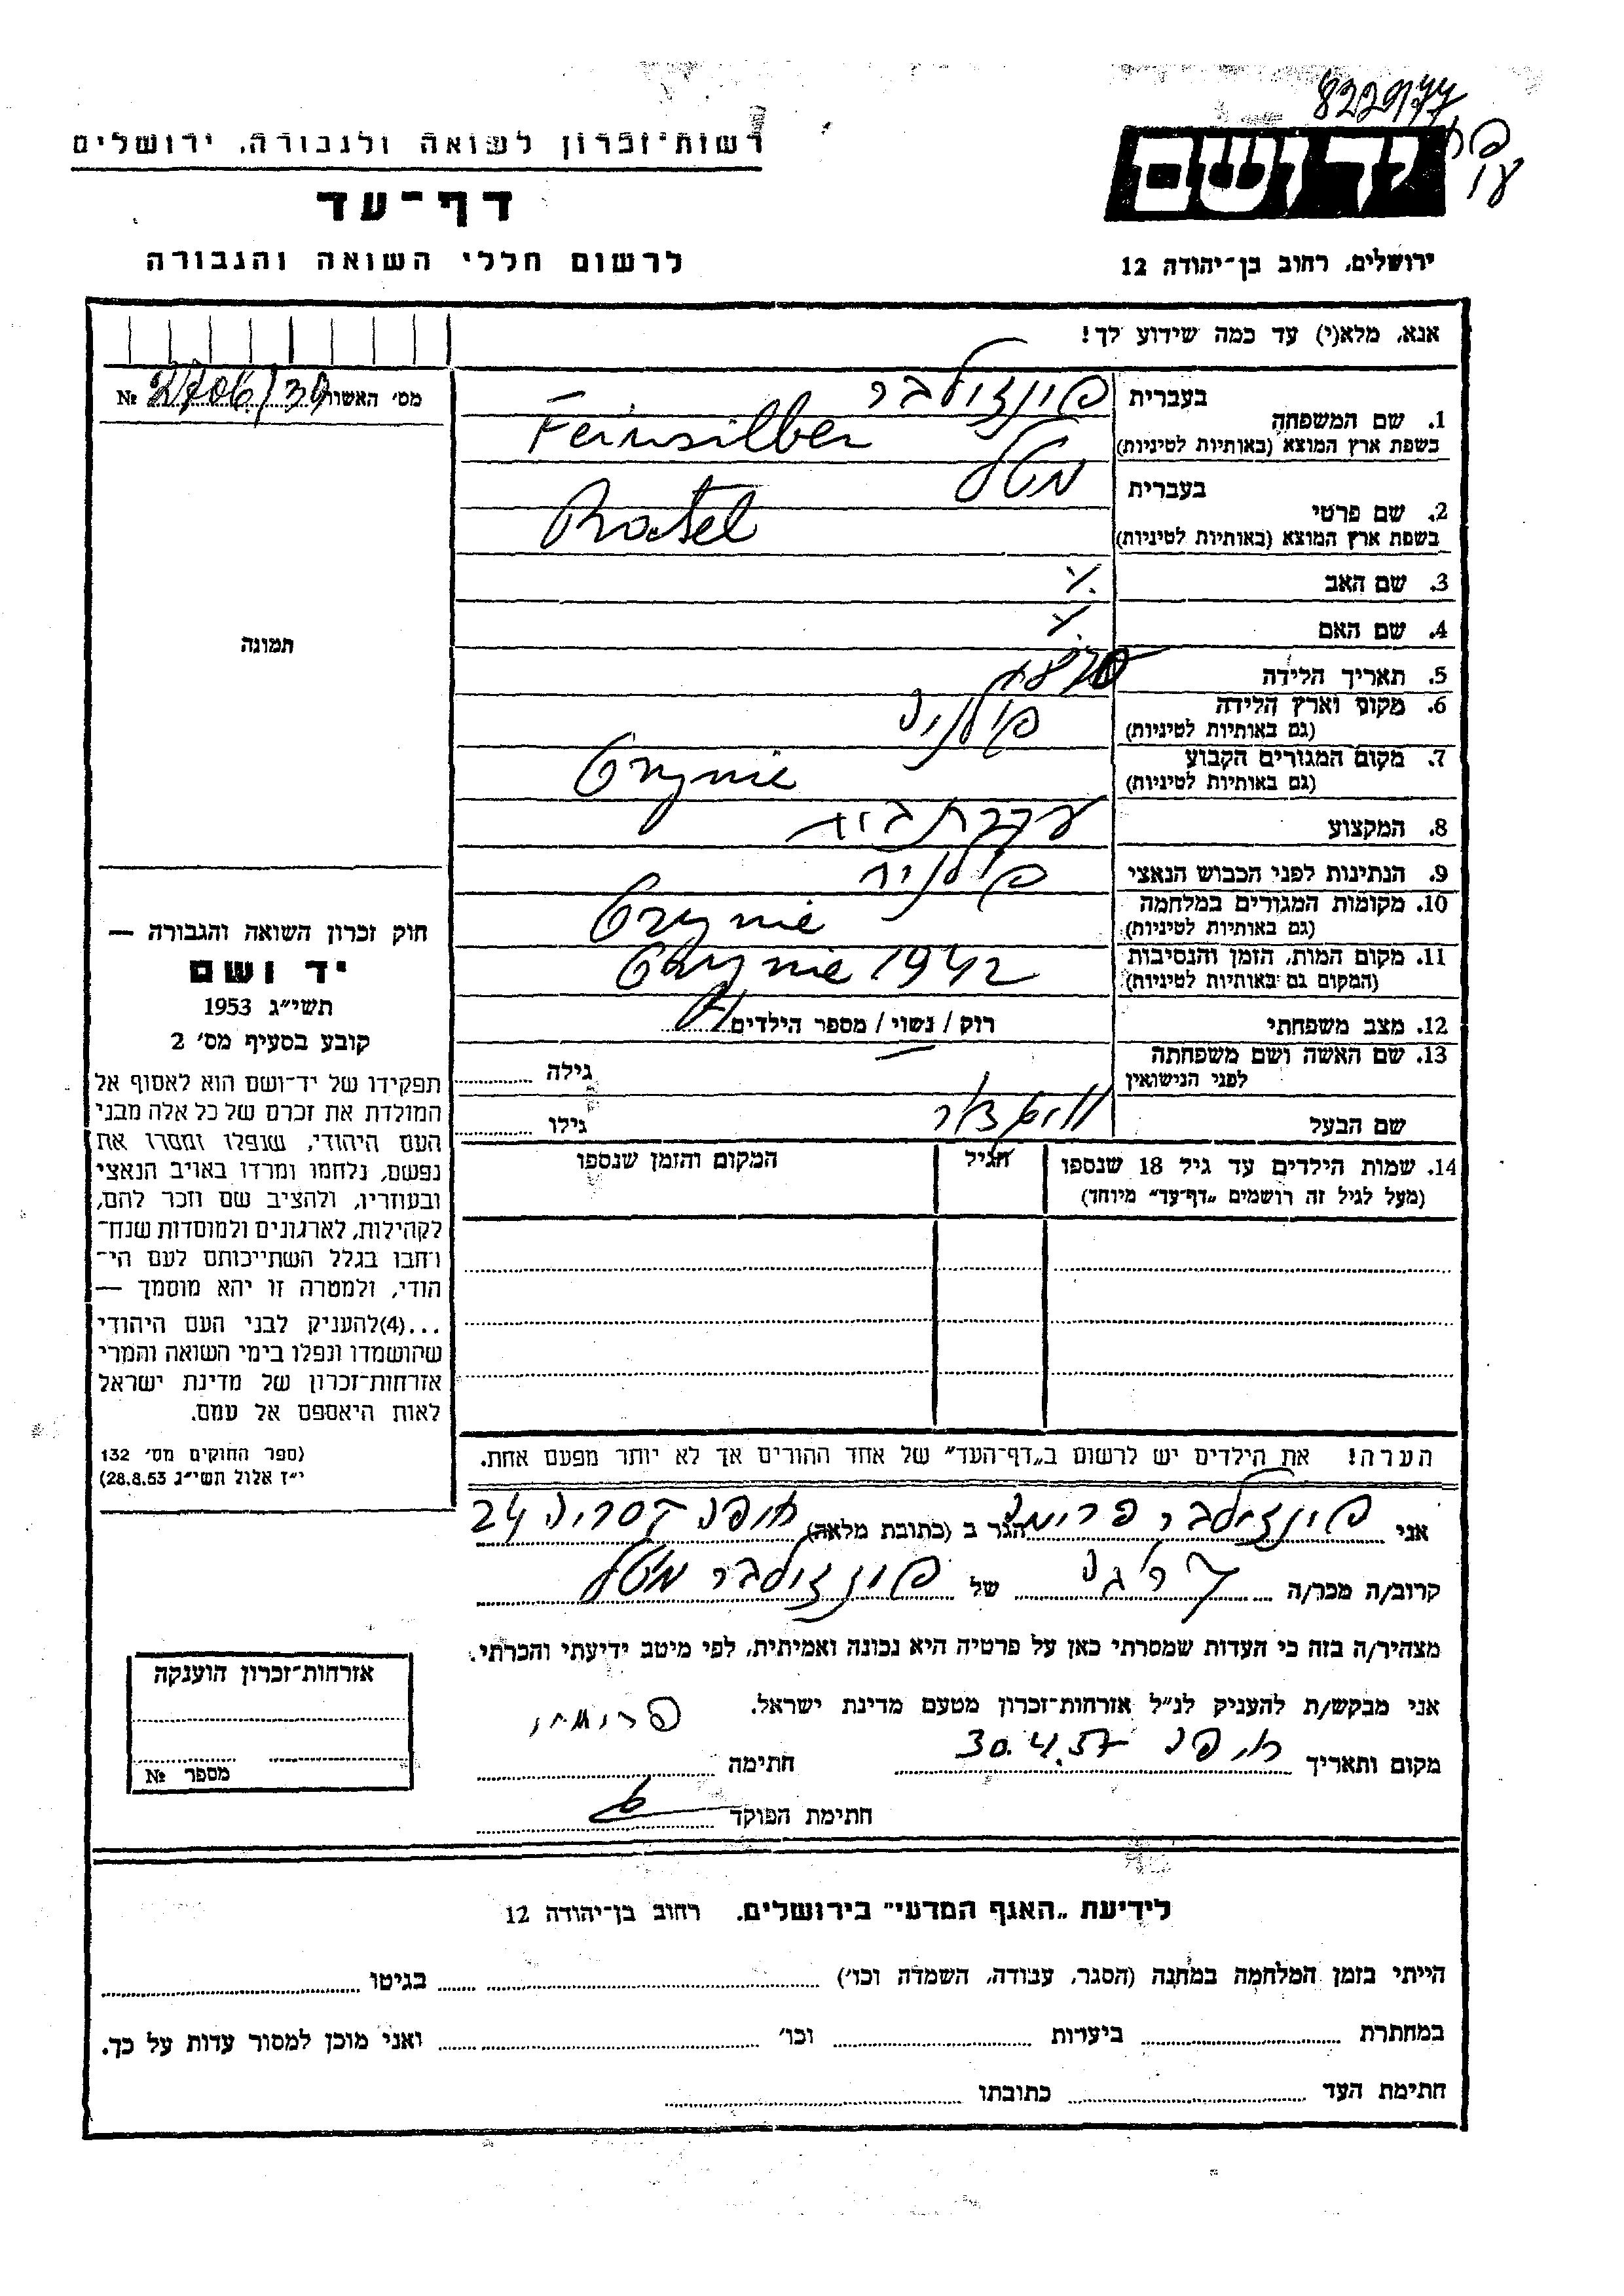 822977
רשות־זכרון לשואה ולגבורה, ירושלים
יד ושם
דף־עד
לרשום חללי השואה והגבורה
ירושלים, רחוב בן־יהודה 12
אנא, מלא(י) עד כמה שידוע לך!
מס׳ האשור № 2706/39
1. שם המשפחה בעברית פינזילבר
בשפת ארץ המוצא (באותיות לטיניות) Feinsilber
2. שם פרטי בעברית מטל
בשפת ארץ המוצא (באותיות לטיניות)
3. שם האב
4. שם האם
תמונה
5. תאריך הלידה
6. מקום וארץ הלידה פולניה
(גם באותיות לטיניות)
7. מקום המגורים הקבוע
(גם באותיות לטיניות)
8. המקצוע עקרת בית
9. הנתינות לפני הכבוש הנאצי פולניה
10. מקומות המגורים במלחמה
(גם באותיות לטיניות)
11. מקום המות, הזמן והנסיבות 1942
(המקום גם באותיות לטיניות)
12. מצב משפחתי רוק / נשוי / מספר הילדים
13. שם האשה ושם משפחתה
לפני הנישואין
גילה
שם הבעל
גילו
14. שמות הילדים עד גיל 18 שנספו
(מעל לגיל זה רושמים „דף־עד״ מיוחד)
הגיל
המקום והזמן שנספו
חוק זכרון השואה והגבורה —
יד ושם
תשי״ג 1953
קובע בסעיף מס׳ 2
תפקידו של יד־ושם הוא לאסוף אל
המולדת את זכרם של כל אלה מבני
העם היהודי, שנפלו ומסרו את
נפשם, נלחמו ומרדו באויב הנאצי
ובעוזריו, ולהציב שם וזכר להם,
לקהילות, לארגונים ולמוסדות שנח־
רחבו בגלל השתייכותם לעם הי־
הודי, ולמטרה זו יהא מוסמך —
...(4)להעניק לבני העם היהודי
שהושמדו ונפלו בימי השואה והמרי
אזרחות־זכרון של מדינת ישראל
לאות היאספם אל עמם.
(ספר החוקים מס׳ 132
י״ז אלול תשי״ג 28.8.53)
הערה! את הילדים יש לרשום ב„דף־העד״ של אחד ההורים אך לא יותר מפעם אחת.
אני פינזילבר הגר ב (כתובת מלאה) חיפה 24
קרוב/ה מכר/ה של פינזילבר מטל
מצהיר/ה בזה כי העדות שמסרתי כאן על פרטיה היא נכונה ואמיתית, לפי מיטב ידיעתי והכרתי.
אני מבקש/ת להעניק לנ״ל אזרחות־זכרון מטעם מדינת ישראל.
מקום ותאריך חיפה 30.4.57 חתימה
חתימת הפוקד
אזרחות־זכרון הוענקה
מספר №
לידיעת „האגף המדעי״ בירושלים. רחוב בן־יהודה 12
הייתי בזמן המלחמה במחנה (הסגר, עבודה, השמדה וכו׳) בגיטו
במחתרת ביערות וכו׳ ואני מוכן למסור עדות על כך.
חתימת העד כתובתו